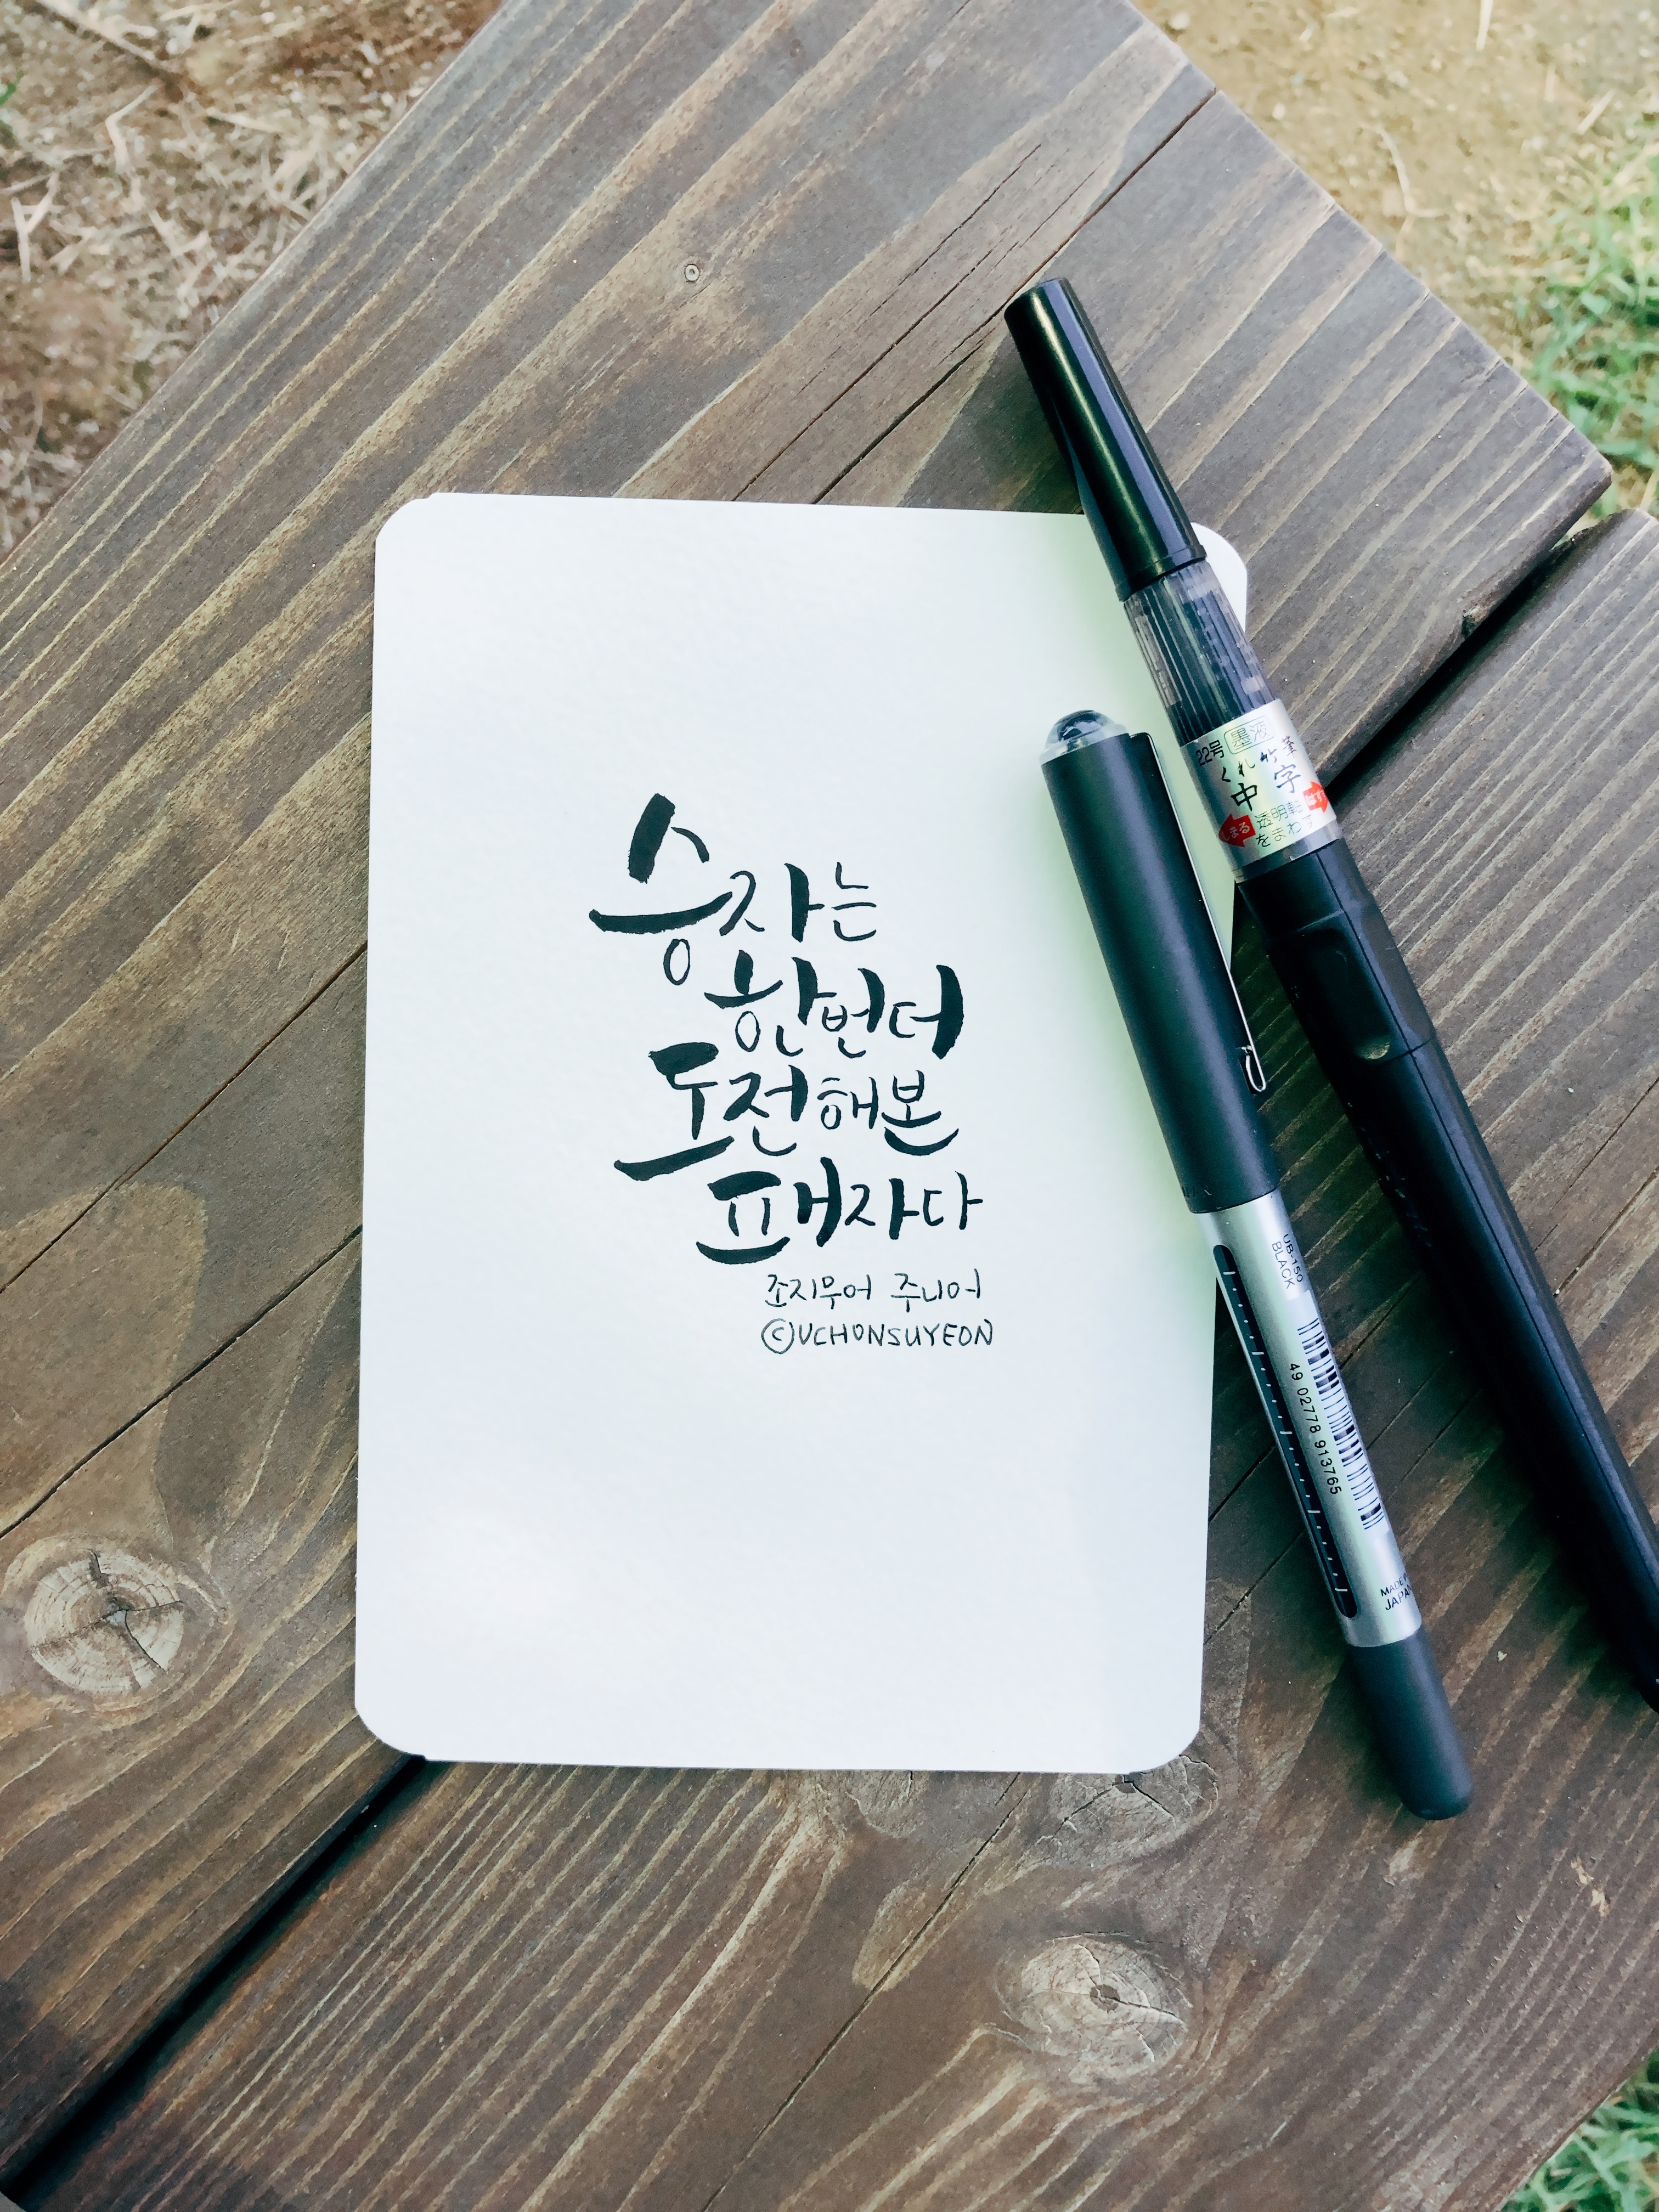 승자는
한번더
도전해본
패자다
조지무어 주니어
©UCHONSUYEON
22号 墨液
くれ竹 筆
中 字
しまる
透明軸
をまわす
UB-150
BLACK
49 02778 913765
MADE IN
JAPAN